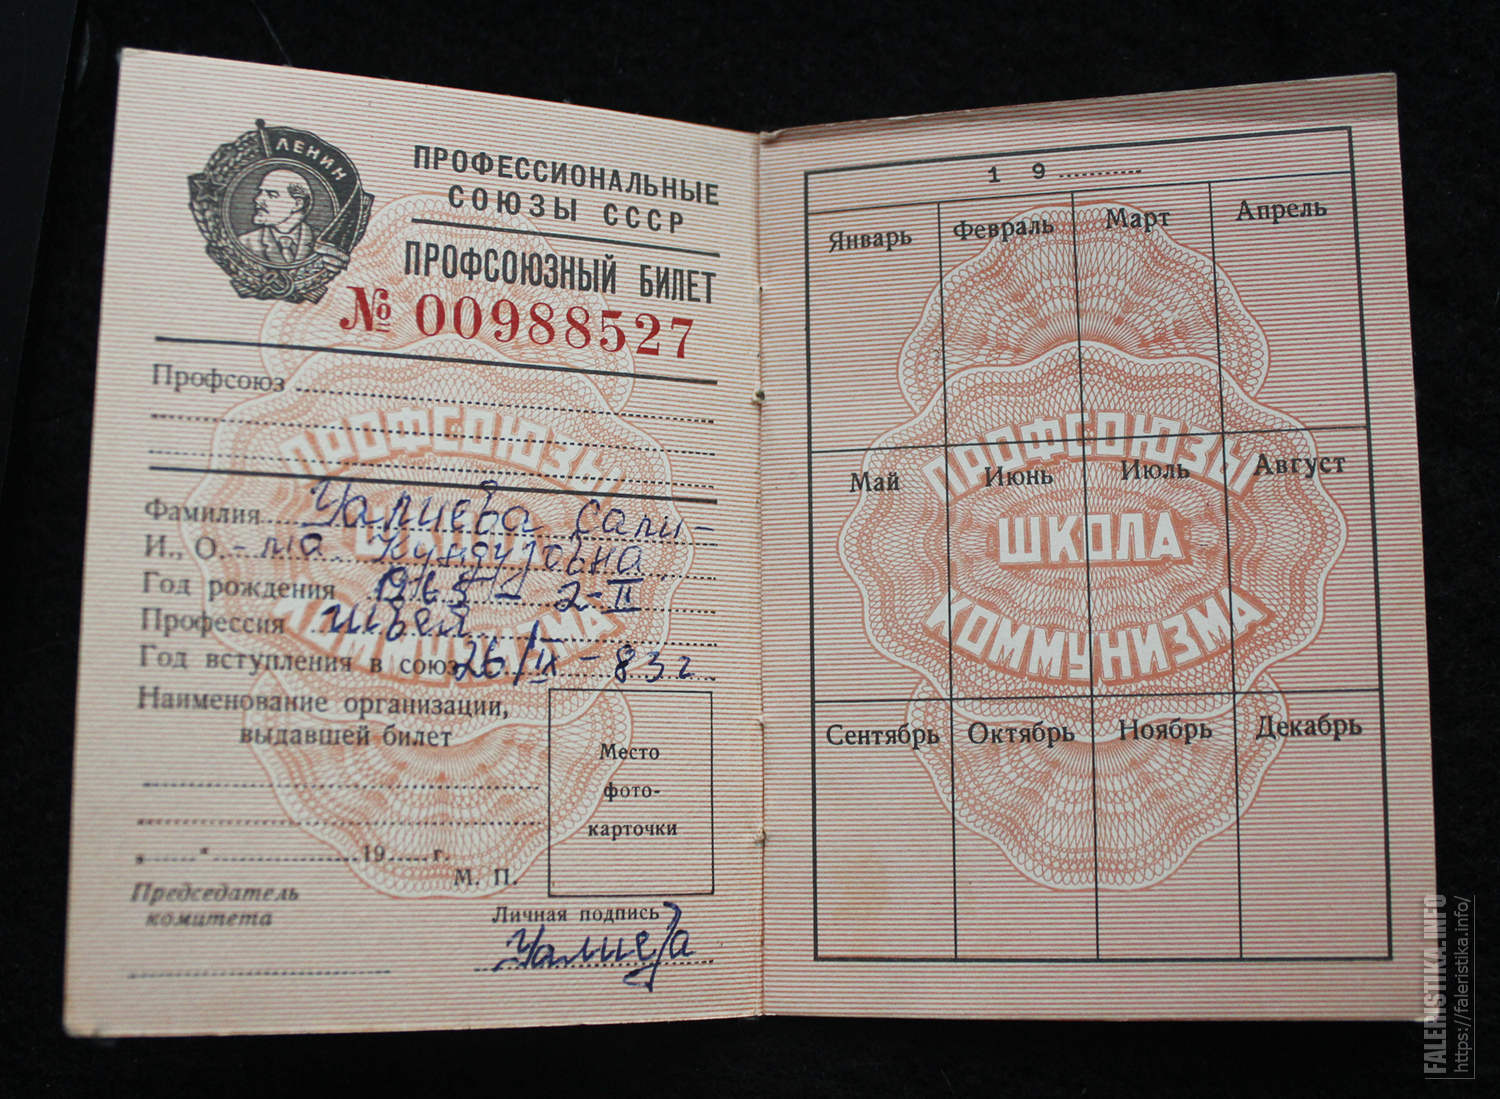 ЛЕНИН
ПРОФЕССИОНАЛЬНЫЕ
СОЮЗЫ СССР
ПРОФСОЮЗНЫЙ БИЛЕТ
№ 00988527
Профсоюз
ПРОФСОЮЗЫ
ШКОЛА
КОММУНИЗМА
Фамилия Уалиева Сали-
И., О. -ма Кундузовна
Год рождения 1965 - 2-II
Профессия швея
Год вступления в союз 26/IX - 83 г
Наименование организации,
выдавшей билет
Место
фото-
карточки
„ “ 19 г.
М. П.
Председатель
комитета
Личная подпись
Уалиева
19
Январь Февраль Март Апрель
Май Июнь Июль Август
ПРОФСОЮЗЫ
ШКОЛА
КОММУНИЗМА
Сентябрь Октябрь Ноябрь Декабрь
FALERISTIKA.INFO
https://faleristika.info/